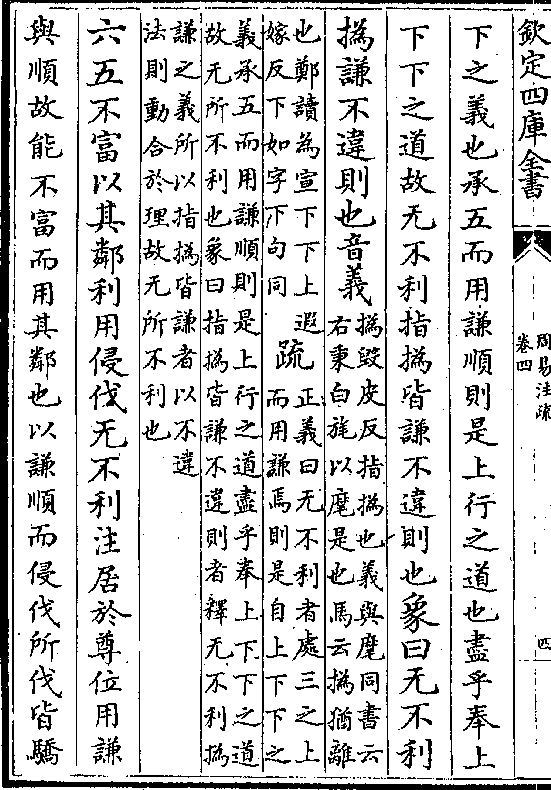 欽定四庫全書
周易注疏
卷四
四
下之義也承五而用謙順則是上行之道也盡乎奉上
下下之道故无不利指撝皆謙不違則也象曰无不利
撝謙不違則也音義
撝毀皮反指撝也義與麾同書云
右秉白旄以麾是也馬云撝猶離
也鄭讀為宣下下上遐
嫁反下如字下句同
疏
正義曰无不利者處三之上
而用謙焉則是自上下下之
義承五而用謙順則是上行之道盡乎奉上下下之道
故无所不利也象曰指撝皆謙不違則者釋无不利撝
謙之義所以指撝皆謙者以不違
法則動合於理故无所不利也
六五不富以其鄰利用侵伐无不利注居於尊位用謙
與順故能不富而用其鄰也以謙順而侵伐所伐皆驕